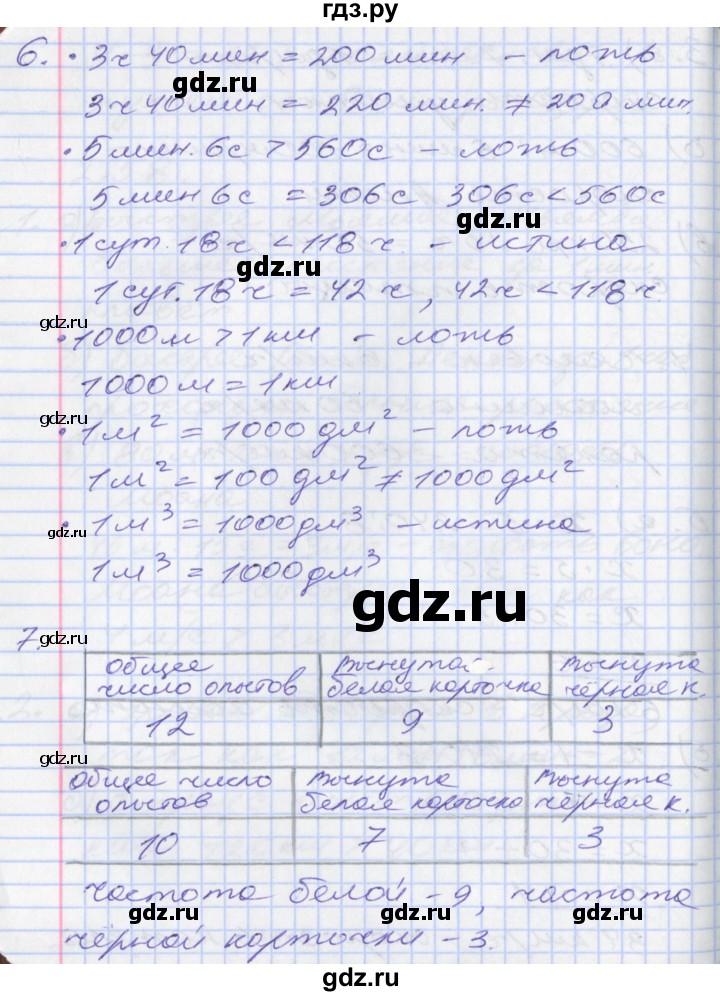 гдз.ру
6. • 3ч 40мин = 200мин – ложь
gdz.ru
3ч 40мин = 220 мин. ≠ 200 мин.
• 5мин. 6с > 560с – ложь
5мин 6с = 306с 306с < 560с
gdz.ru
• 1сут. 18ч < 118 ч. – истина
gdz.ru
1сут. 18ч = 42 ч, 42ч < 118ч.
gdz.ru
• 1000м > 1км – ложь
1000м = 1км
gdz.ru
• 1м² = 1000дм² – ложь
1м² = 100дм² ≠ 1000дм²
gdz.ru
• 1м³ = 1000дм³ – истина
1м³ = 1000дм³
gdz.ru
7.
общее число опытов | вынута белая карточка | вынута чёрная к.
12 | 9 | 3
gdz.ru
общее число опытов | вынута белая карточка | вынута чёрная к.
10 | 7 | 3
gdz.ru gdz.ru gdz.ru
частота белой – 9, частота
gdz.ru gdz.ru
чёрной карточки – 3.
gdz.ru